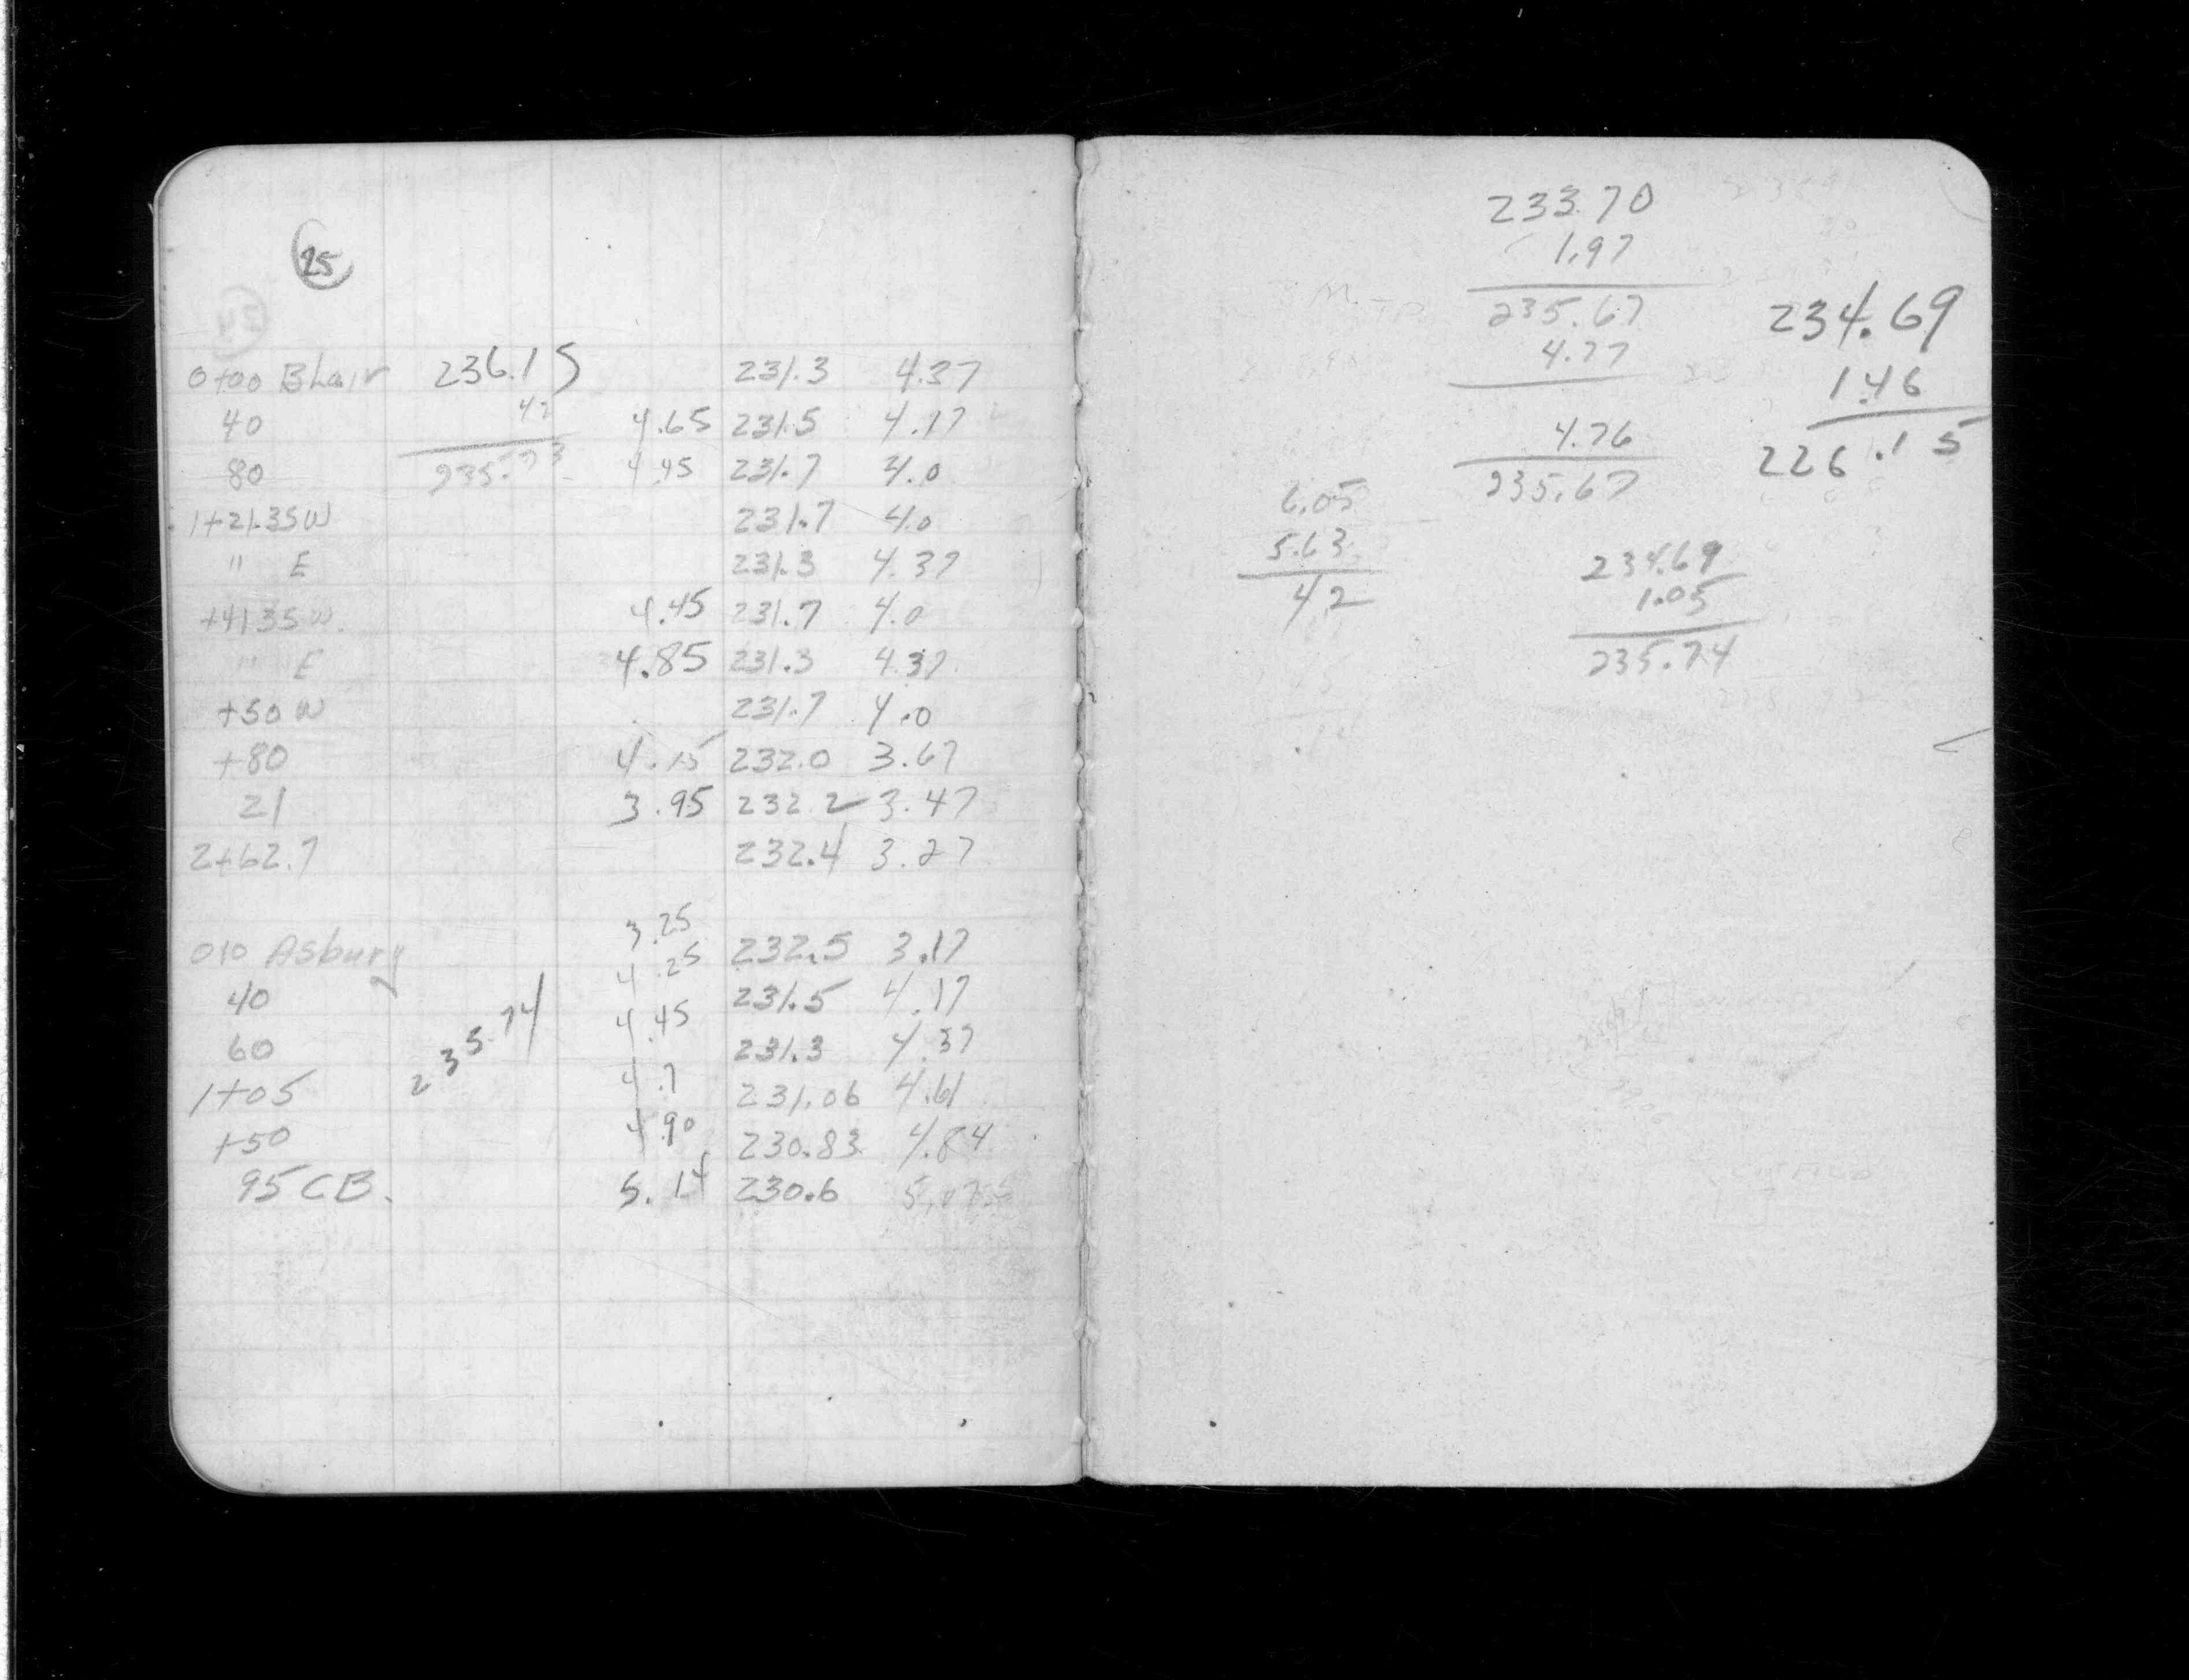 25
0+00 Blair 236.15 231.3 4.37
40 42 4.65 231.5 4.17
80 235.73 4.45 231.7 4.0
1+21.35W 231.7 4.0
" E 231.3 4.37
+41.35W. 4.45 231.7 4.0
" E 4.85 231.3 4.37
+50 W 231.7 4.0
+80 4.15 232.0 3.67
21 3.95 232.2 3.47
2+62.7 232.4 3.27
3.25
010 Asbury 4.25 232.5 3.17
40 4.45 231.5 4.17
60 235.74 231.3 4.37
1+05 4.7 231.06 4.61
+50 4.90 230.83 4.84
95 CB. 5.14 230.6
233.70
1.97
235.67
4.77
4.76
235.67
234.69
1.46
226.15
6.05
5.63
42
234.69
1.05
235.74